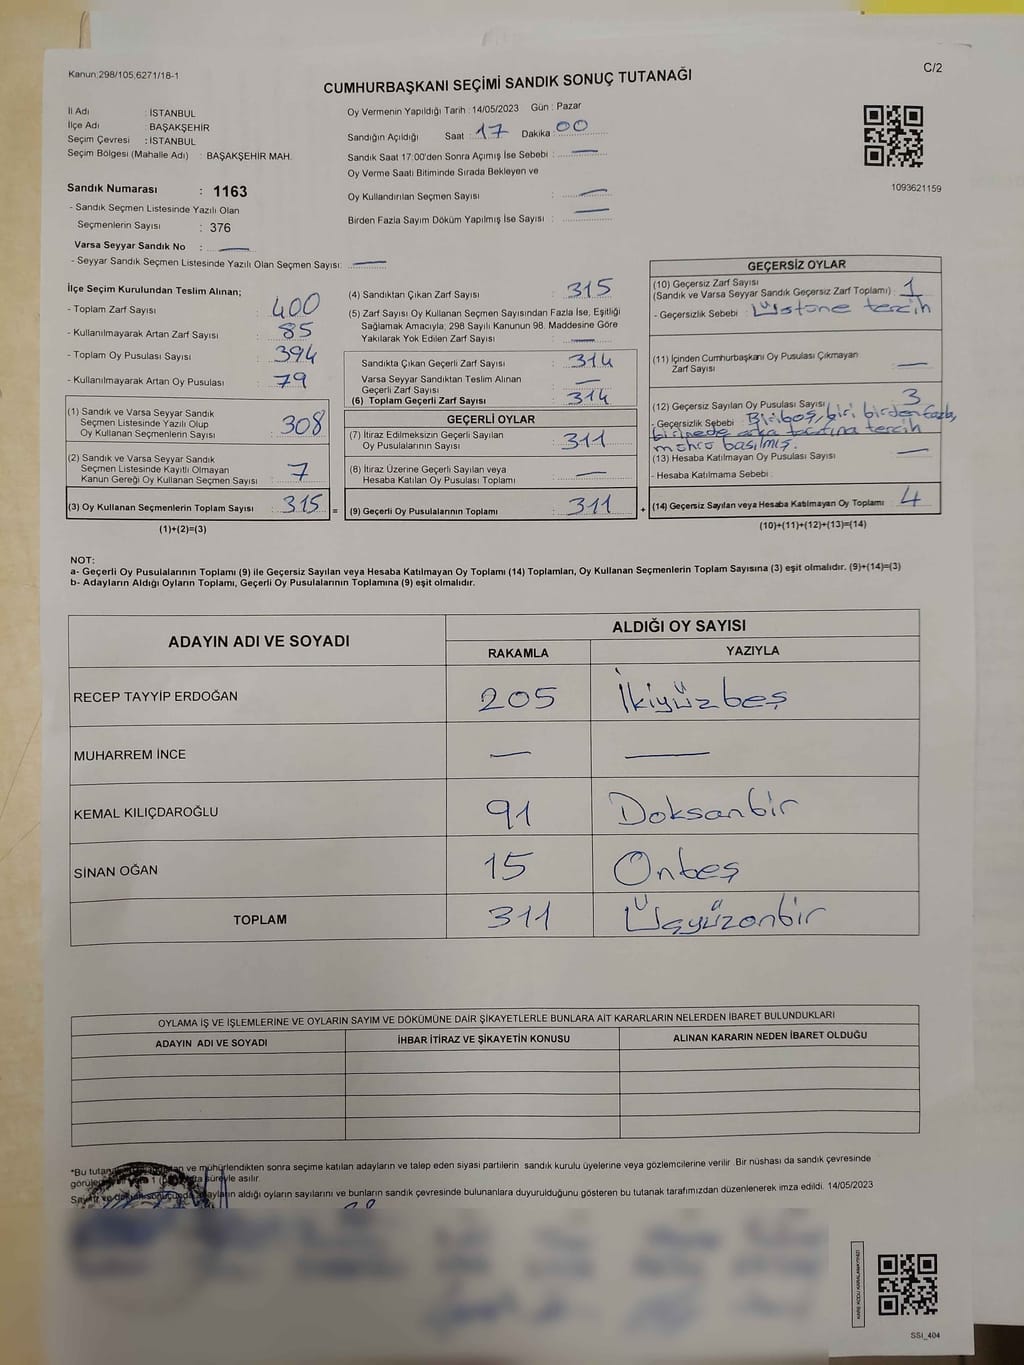 Kanun:298/105,6271/18-1
C/2
CUMHURBAŞKANI SEÇİMİ SANDIK SONUÇ TUTANAĞI
İl Adı : İSTANBUL
İlçe Adı BAŞAKŞEHİR
Seçim Çevresi : İSTANBUL
Seçim Bölgesi (Mahalle Adı) : BAŞAKŞEHİR MAH.
Sandık Numarası : 1163
- Sandık Seçmen Listesinde Yazılı Olan
Seçmenlerin Sayısı : 376
Varsa Seyyar Sandık No : —
- Seyyar Sandık Seçmen Listesinde Yazılı Olan Seçmen Sayısı: —
Oy Vermenin Yapıldığı Tarih : 14/05/2023 Gün : Pazar
Sandığın Açıldığı Saat : 17 Dakika : 00
Sandık Saat 17:00'den Sonra Açımış İse Sebebi : —
Oy Verme Saati Bitiminde Sırada Bekleyen ve
Oy Kullandırılan Seçmen Sayısı : —
Birden Fazla Sayım Döküm Yapılmış İse Sayısı : —
1093621159
İlçe Seçim Kurulundan Teslim Alınan;
- Toplam Zarf Sayısı : 400
- Kullanılmayarak Artan Zarf Sayısı : 85
- Toplam Oy Pusulası Sayısı : 394
- Kullanılmayarak Artan Oy Pusulası : 79
(1) Sandık ve Varsa Seyyar Sandık
Seçmen Listesinde Yazılı Olup
Oy Kullanan Seçmenlerin Sayısı : 308
(2) Sandık ve Varsa Seyyar Sandık
Seçmen Listesinde Kayıtlı Olmayan
Kanun Gereği Oy Kullanan Seçmen Sayısı : 7
(3) Oy Kullanan Seçmenlerin Toplam Sayısı : 315 =
(1)+(2)=(3)
(4) Sandıktan Çıkan Zarf Sayısı : 315
(5) Zarf Sayısı Oy Kullanan Seçmen Sayısından Fazla İse, Eşitliği
Sağlamak Amacıyla; 298 Sayılı Kanunun 98. Maddesine Göre
Yakılarak Yok Edilen Zarf Sayısı : —
Sandıkta Çıkan Geçerli Zarf Sayısı : 314
Varsa Seyyar Sandıktan Teslim Alınan
Geçerli Zarf Sayısı : —
(6) Toplam Geçerli Zarf Sayısı : 314
GEÇERLİ OYLAR
(7) İtiraz Edilmeksizin Geçerli Sayılan
Oy Pusulası Toplamı : 311
(8) İtiraz Üzerine Geçerli Sayılan veya
Hesaba Katılan Oy Pusulası Toplamı : —
(9) Geçerli Oy Pusulalarının Toplamı : 311 +
GEÇERSİZ OYLAR
(10) Geçersiz Zarf Sayısı
(Sandık ve Varsa Seyyar Sandık Geçersiz Zarf Toplamı) : 1
- Geçersizlik Sebebi : Üstüne tercih
(11) İçinden Cumhurbaşkanı Oy Pusulası Çıkmayan
Zarf Sayısı : —
(12) Geçersiz Sayılan Oy Pusulası Sayısı : 3
- Geçersizlik Sebebi : Biri boş, biri birden fazla,
birinede arka tarafına tercih
mührü basılmış.
(13) Hesaba Katılmayan Oy Pusulası Sayısı : —
- Hesaba Katılmama Sebebi :
(14) Geçersiz Sayılan veya Hesaba Katılmayan Oy Toplamı : 4
(10)+(11)+(12)+(13)=(14)
NOT:
a- Geçerli Oy Pusulalarının Toplamı (9) ile Geçersiz Sayılan veya Hesaba Katılmayan Oy Toplamı (14) Toplamları, Oy Kullanan Seçmenlerin Toplam Sayısına (3) eşit olmalıdır. (9)+(14)=(3)
b- Adayların Aldığı Oyların Toplamı, Geçerli Oy Pusulalarının Toplamına (9) eşit olmalıdır.
ADAYIN ADI VE SOYADI
ALDIĞI OY SAYISI
RAKAMLA YAZIYLA
RECEP TAYYİP ERDOĞAN 205 İkiyüzbeş
MUHARREM İNCE — —
KEMAL KILIÇDAROĞLU 91 Doksanbir
SİNAN OĞAN 15 Onbeş
TOPLAM 311 Üçyüzonbir
OYLAMA İŞ VE İŞLEMLERİNE VE OYLARIN SAYIM VE DÖKÜMÜNE DAİR ŞİKAYETLERLE BUNLARA AİT KARARLARIN NELERDEN İBARET BULUNDUKLARI
ADAYIN ADI VE SOYADI İHBAR İTİRAZ VE ŞİKAYETİN KONUSU ALINAN KARARIN NEDEN İBARET OLDUĞU
*Bu ve mühürlendikten sonra seçime katılan adayların ve talep eden siyasi partilerin sandık kurulu üyelerine veya gözlemcilerine verilir. Bir nüshası da sandık çevresinde
süreyle asılır.
aldığı oyların sayılarını ve bunların sandık çevresinde bulunanlara duyurulduğunu gösteren bu tutanak tarafımızdan düzenlenerek imza edildi. 14/05/2023
SSI_404